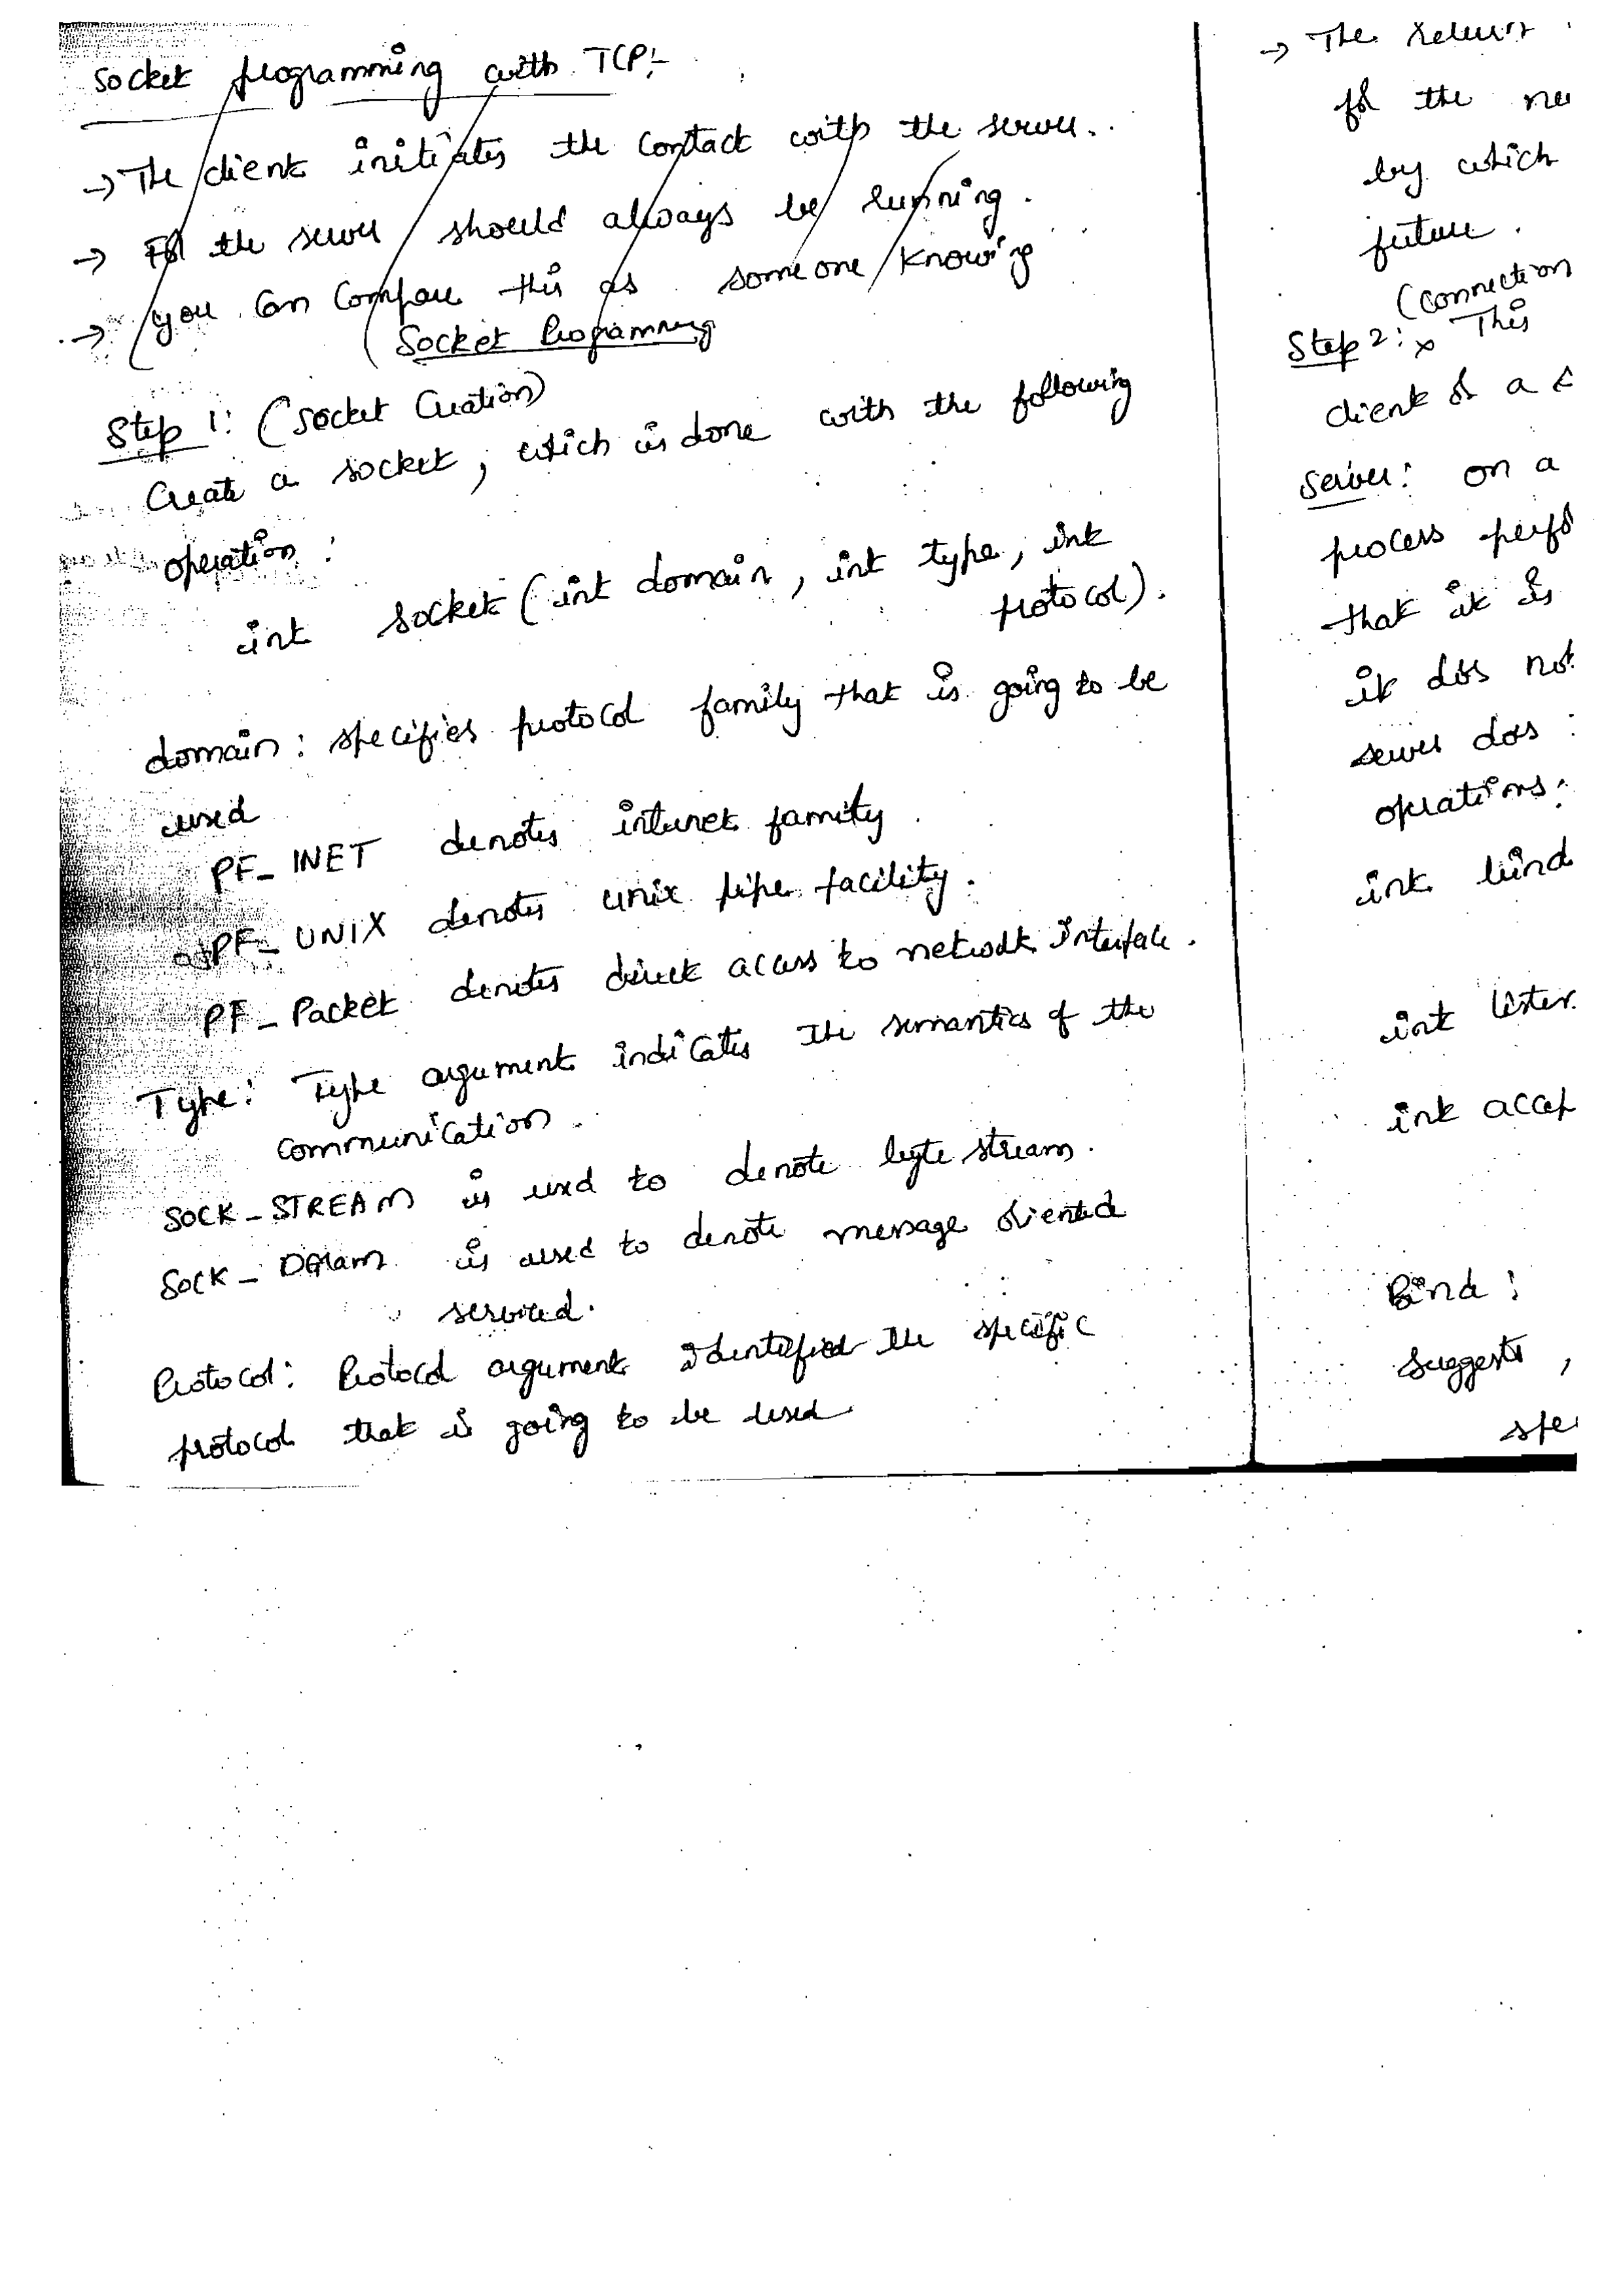 Socket programming with TCP:-
→ The client initiates the contact with the server.
→ For the server should always be running.
→ you can compare this as someone knowing
Socket Programming
Step 1: (Socket Creation)
Create a socket, which is done with the following
operation:
int socket (int domain, int type, int
protocol).
domain: specifies protocol family that is going to be
used
PF_INET denotes internet family.
PF_UNIX denotes unix pipe facility.
PF_Packet denotes direct access to network interface.
Type: Type argument indicates the semantics of the
communication.
SOCK_STREAM is used to denote byte stream.
SOCK_DGram is used to denote message oriented
serviced.
Protocol: Protocol argument identified the specific
protocol that is going to be used
→ The
for the
by which
future.
(connection
Step 2: x This
client or a
Server: on a
process
that it is
it does not
server does
operations:
int bind
int
int
Bind:
suggests,